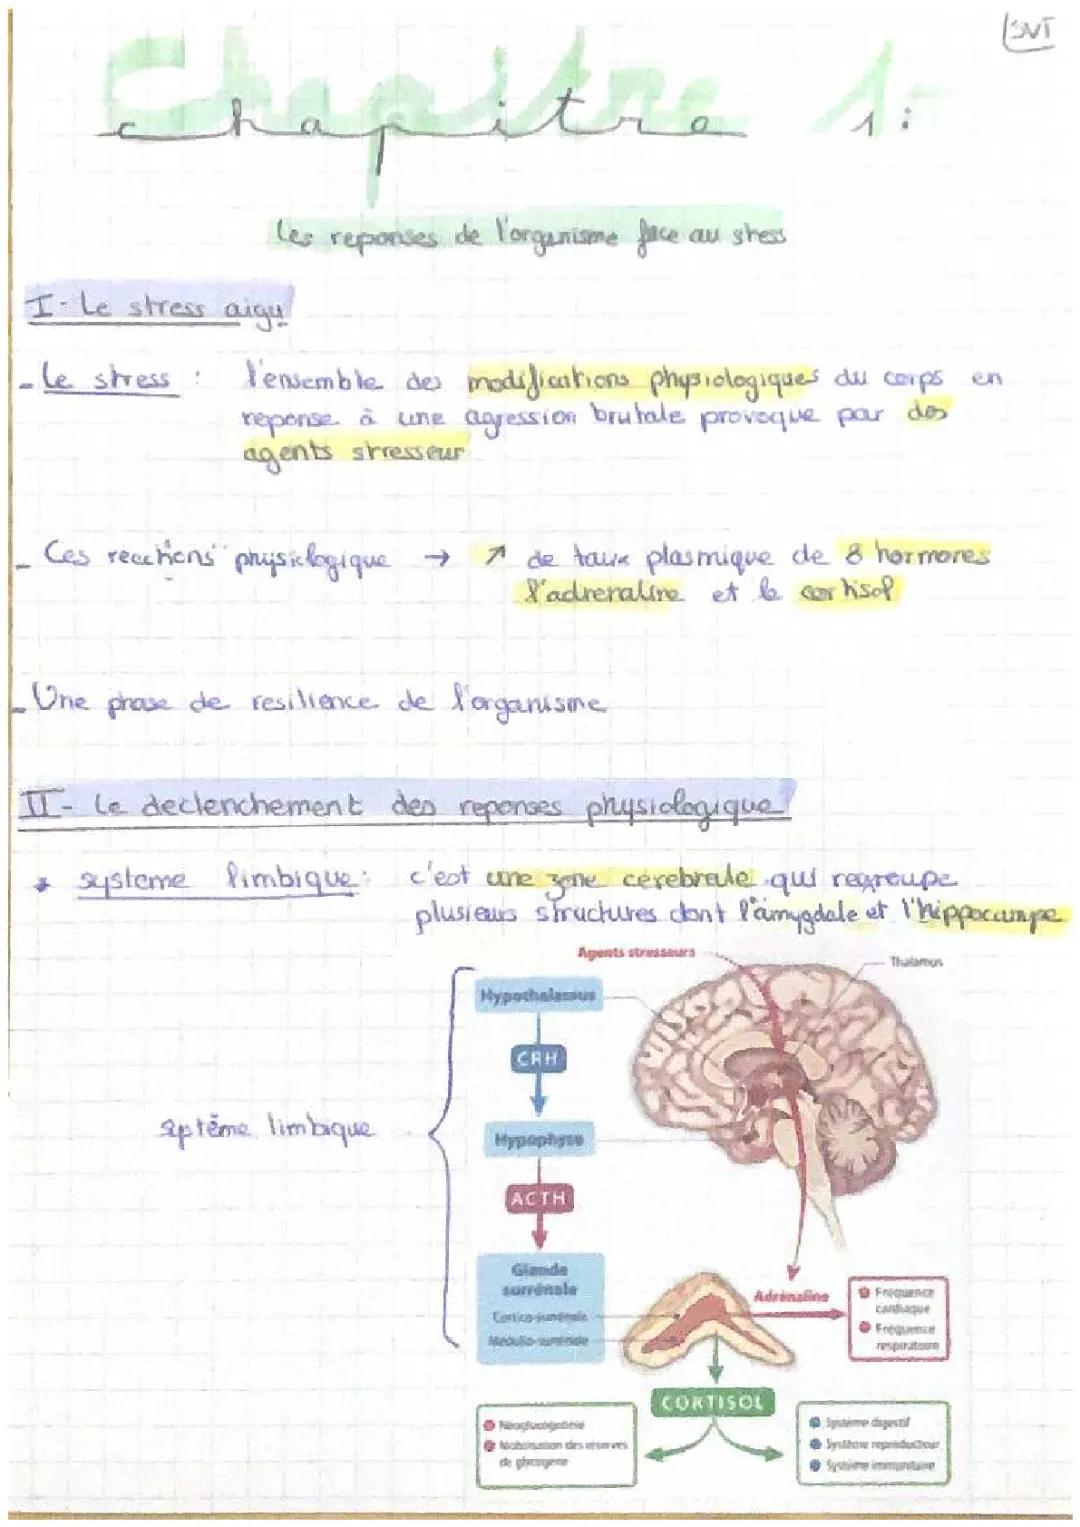 SVT
Chapitre 1:
Les reponses de l'organisme face au stress
I- Le stress aigu
- Le stress : l'ensemble des modifications physiologiques du corps en
reponse à une agression brutale provoque par des
agents stresseur
- Ces reactions physiologique → ↗ de taux plasmique de 8 hormones
l'adrenaline et le cortisol
- Une phase de resilience de l'organisme
II- Le declenchement des reponses physiologique
* systeme limbique: c'est une zone cerebrale qui regroupe
plusieurs structures dont l'amygdale et l'hippocampe
Agents stresseurs
Thalamus
Hypothalamus
CRH
système limbique
Hypophyse
ACTH
Glande
surrénale
Cortico-surrénale
Médullo-surrénale
Adrénaline
Fréquence
cardiaque
Fréquence
respiratoire
CORTISOL
Néoglucogenèse
Mobilisation des réserves
de glycogène
Système digestif
Système reproducteur
Système immunitaire